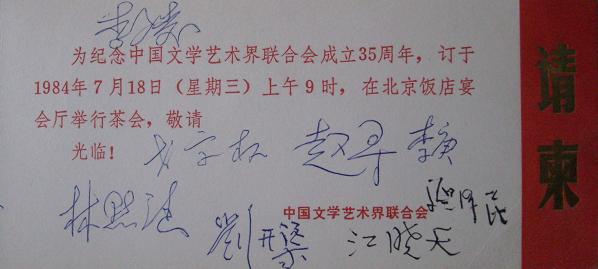 为纪念中国文学艺术界联合会成立35周年，订于
1984年7月18日（星期三）上午9时，在北京饭店宴
会厅举行茶会，敬请
光临！
赵寻
林默涵
中国文学艺术界联合会
刘开渠
江晓天
请柬